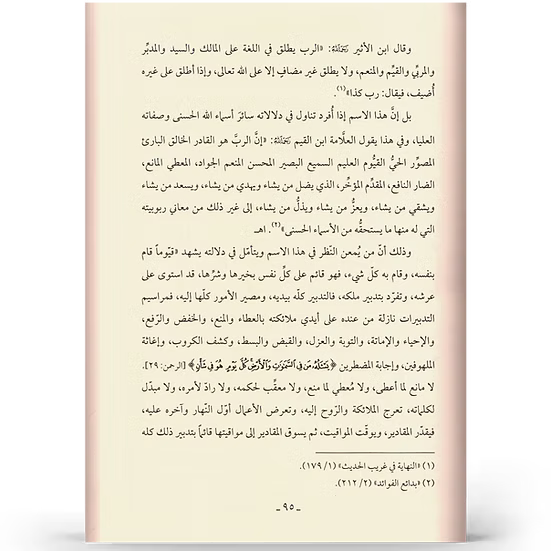 وقال ابن الأثير رَحِمَهُ اللَّهُ: «الرب يطلق في اللغة على المالك والسيد والمدبِّر
والمربِّي والقيِّم والمنعم، ولا يطلق غير مضافٍ إلا على الله تعالى، وإذا أطلق على غيره
أُضيف، فيقال: رب كذا»(١).
بل إنَّ هذا الاسم إذا أُفرد تناول في دلالاته سائرَ أسماء الله الحسنى وصفاته
العليا، وفي هذا يقول العلَّامة ابن القيم رَحِمَهُ اللَّهُ: «إنَّ الربَّ هو القادر الخالق البارئ
المصوِّر الحيُّ القيُّوم العليم السميع البصير المحسن المنعم الجواد، المعطي المانع،
الضار النافع، المقدِّم المؤخِّر، الذي يضل من يشاء ويهدي من يشاء، ويسعد من يشاء
ويشقي من يشاء، ويعزُّ من يشاء ويذلُّ من يشاء، إلى غير ذلك من معاني ربوبيته
التي له منها ما يستحقُّه من الأسماء الحسنى»(٢). اهـ
وذلك أنّ من يُمعن النّظر في هذا الاسم ويتأمّل في دلالته يشهد «قيّوماً قام
بنفسه، وقام به كلّ شيء، فهو قائم على كلِّ نفس بخيرها وشرِّها، قد استوى على
عرشه، وتفرّد بتدبير ملكه، فالتدبير كلّه بيديه، ومصير الأمور كلّها إليه، فمراسيم
التدبيرات نازلة من عنده على أيدي ملائكته بالعطاء والمنع، والخفض والرّفع،
والإحياء والإماتة، والتوبة والعزل، والقبض والبسط، وكشف الكروب، وإغاثة
الملهوفين، وإجابة المضطرين ﴿يَسْـَٔلُهُۥ مَن فِى ٱلسَّمَٰوَٰتِ وَٱلْأَرْضِ كُلَّ يَوْمٍ هُوَ فِى شَأْنٍ﴾ [الرحمن: ٢٩].
لا مانع لما أعطى، ولا مُعطي لما منع، ولا معقِّب لحكمه، ولا رادّ لأمره، ولا مبدّل
لكلماته، تعرج الملائكة والرّوح إليه، وتعرض الأعمال أوّل النّهار وآخره عليه،
فيقدّر المقادير، ويوقّت المواقيت، ثم يسوق المقادير إلى مواقيتها قائماً بتدبير ذلك كله
(١) «النهاية في غريب الحديث» (١/ ١٧٩).
(٢) «بدائع الفوائد» (٢/ ٢١٢).
ـ ٩٥ ـ